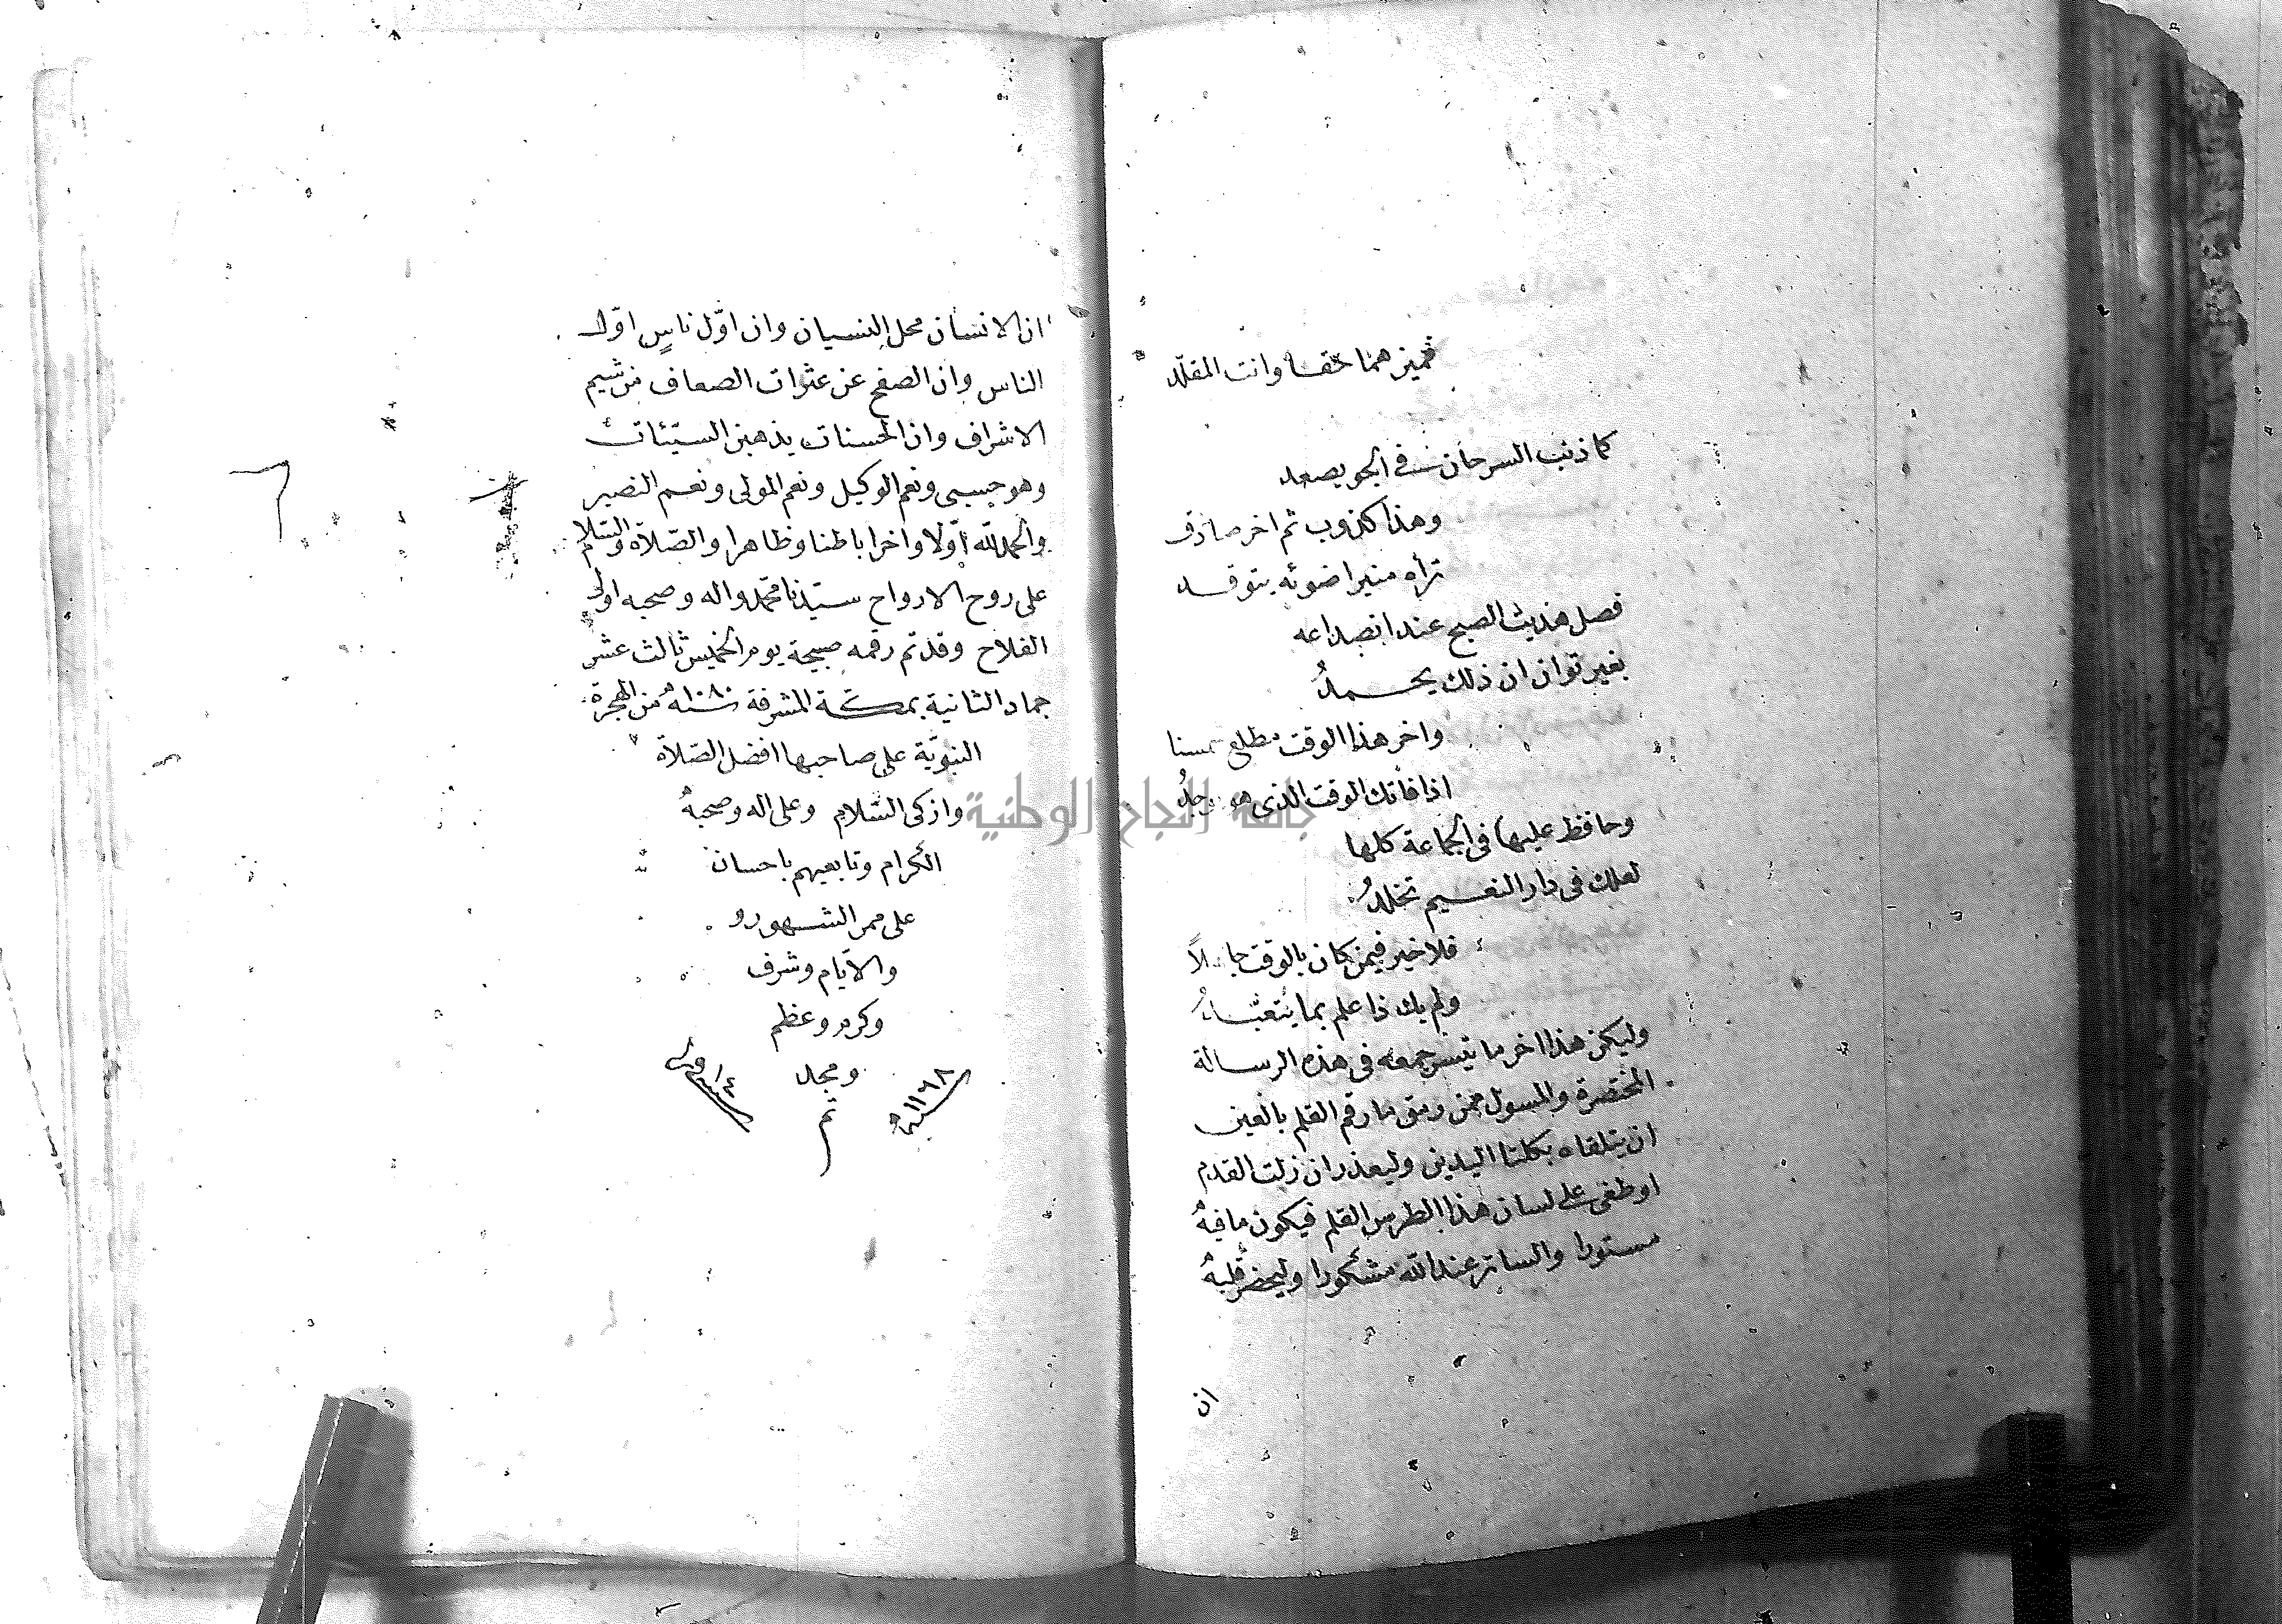 فميزهما حقا وانت المقلد
كما ذنب السرحان في الجو يصعد
وهذا كذوب ثم اخر صادق
تراه منيرا ضوئه يتوقد
فصل هديت الصبح عند انصداعه
بغير توان ان ذلك يحمدُ
واخر هذا الوقت مطلع شمسنا
اذا فاتك الوقت الذي هو
وحافظ عليها في الجماعة كلها
لعلك في دار النعيم تخلدُ
فلا خير فيمن كان بالوقت جاهلاً
ولم يك ذا علم بما يتعبّدُ
وليكن هذا اخر ما تيسر جمعه في هذه الرسالة
المختصرة والمسول ممن رمق ما رقم القلم بالعين
ان يتلقاه بكلتا اليدين وليعذر ان زلت القدم
او طغى على لسان هذا الطرس القلم فيكون ما فيه
مستورا والساتر عند الله مشكورا وليحضر قلبه
ان
ان الانسان محل النسيان وان اوّل ناسٍ اوّل
الناس وان الصفح عن عثرات الضعاف من شيم
الاشراف وان الحسنات يذهبن السيّئات
وهو حسبي ونعم الوكيل ونعم المولى ونعم النصير
والحمد لله اوّلا واخرا باطنا وظاهرا والصّلاة والسّلام
على روح الارواح سيّدنا محمّد واله وصحبه اولي
الفلاح وقد تم رقمه صبيحة يوم الخميس ثالث عشر
جماد الثانية بمكّة المشرفة سنة ١٠٨٠ من الهجرة
النبويّة على صاحبها افضل الصّلاة
وازكى السّلام وعلى اله وصحبه
الكرام وتابعيهم باحسان
على ممر الشهور و
والايّام وشرف
وكرم وعظم
ومجد
تم
سنة ١١٩٨
جامعة النجاح الوطنية